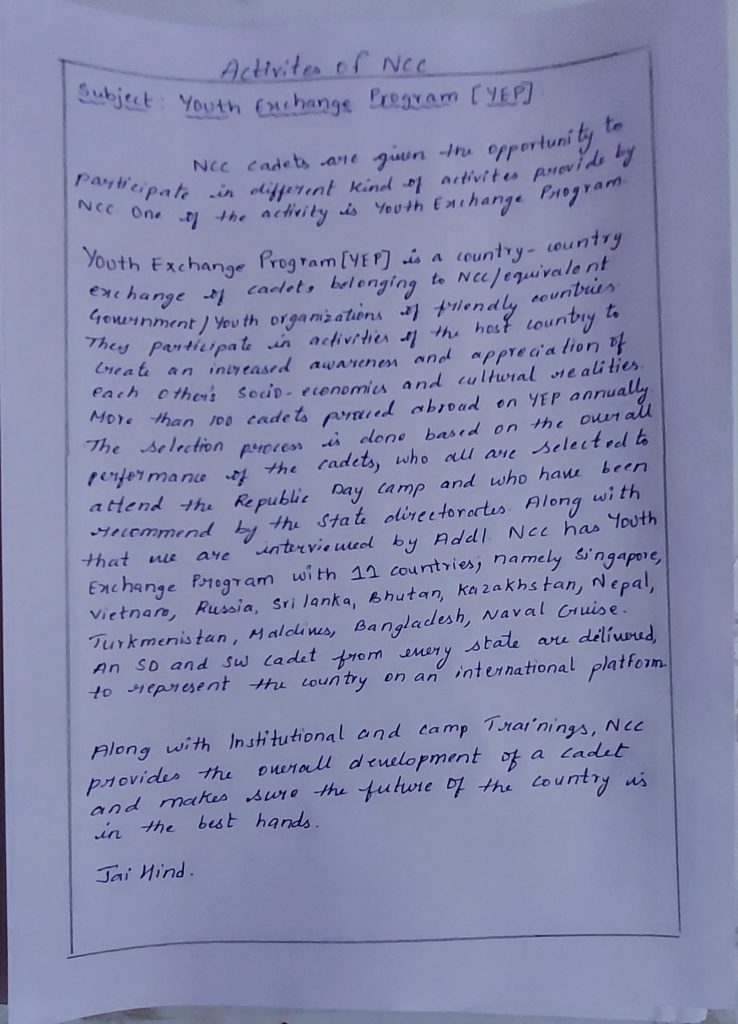 Activites of NCC
Subject: Youth Exchange Program [YEP]
NCC cadets are given the opportunity to
participate in different kind of activites provide by
NCC. One of the activity is Youth Exchange Program.
Youth Exchange Program [YEP] is a country-country
exchange of cadets belonging to NCC/equivalent
Government/Youth organizations of friendly countries.
They participate in activities of the host country to
create an increased awareness and appreciation of
each other's socio-economics and cultural realities.
More than 100 cadets abroad on YEP annually.
The selection process is done based on the overall
performance of the cadets, who all are selected to
attend the Republic Day camp and who have been
recommend by the State directorates. Along with
that we are interviewed by Addl. NCC has Youth
Exchange Program with 11 countries, namely Singapore,
Vietnam, Russia, Sri lanka, Bhutan, Kazakhstan, Nepal,
Turkmenistan, Maldives, Bangladesh, Naval Cruise.
An SD and SW cadet from every state are delivered,
to represent the country on an international platform.
Along with Institutional and camp Trainings, NCC
provides the overall development of a cadet
and makes sure the future of the country is
in the best hands.
Jai Hind.